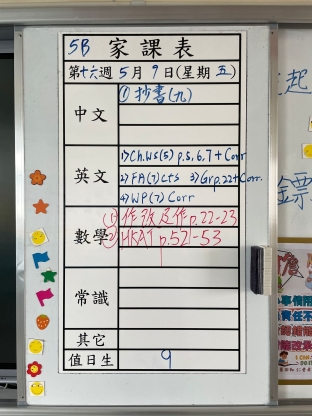 5B 家課表
第十六週 5月9日(星期五)
中文 ①抄書(九)
英文 1) Ch.WS(5) p.5,6,7 + Corr
2) FA(7) Lts 3) Gr p.22 + Corr.
4) WP(7) Corr
數學 ① 作改足作 p.22-23
② HKAT p.52-53
常識
其它
值日生 9
起
鏢